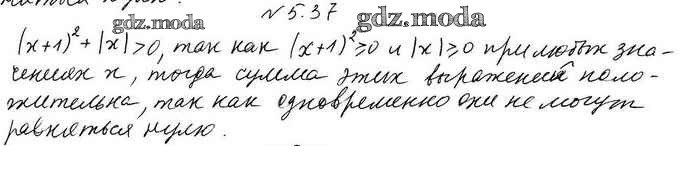 №5.37
gdz.moda gdz.moda
(x+1)²+|x|>0, так как (x+1)²≥0 и |x|≥0 при любых зна-
чениях x, тогда сумма этих выражений поло-
жительна, так как одновременно они не могут
равняться нулю.